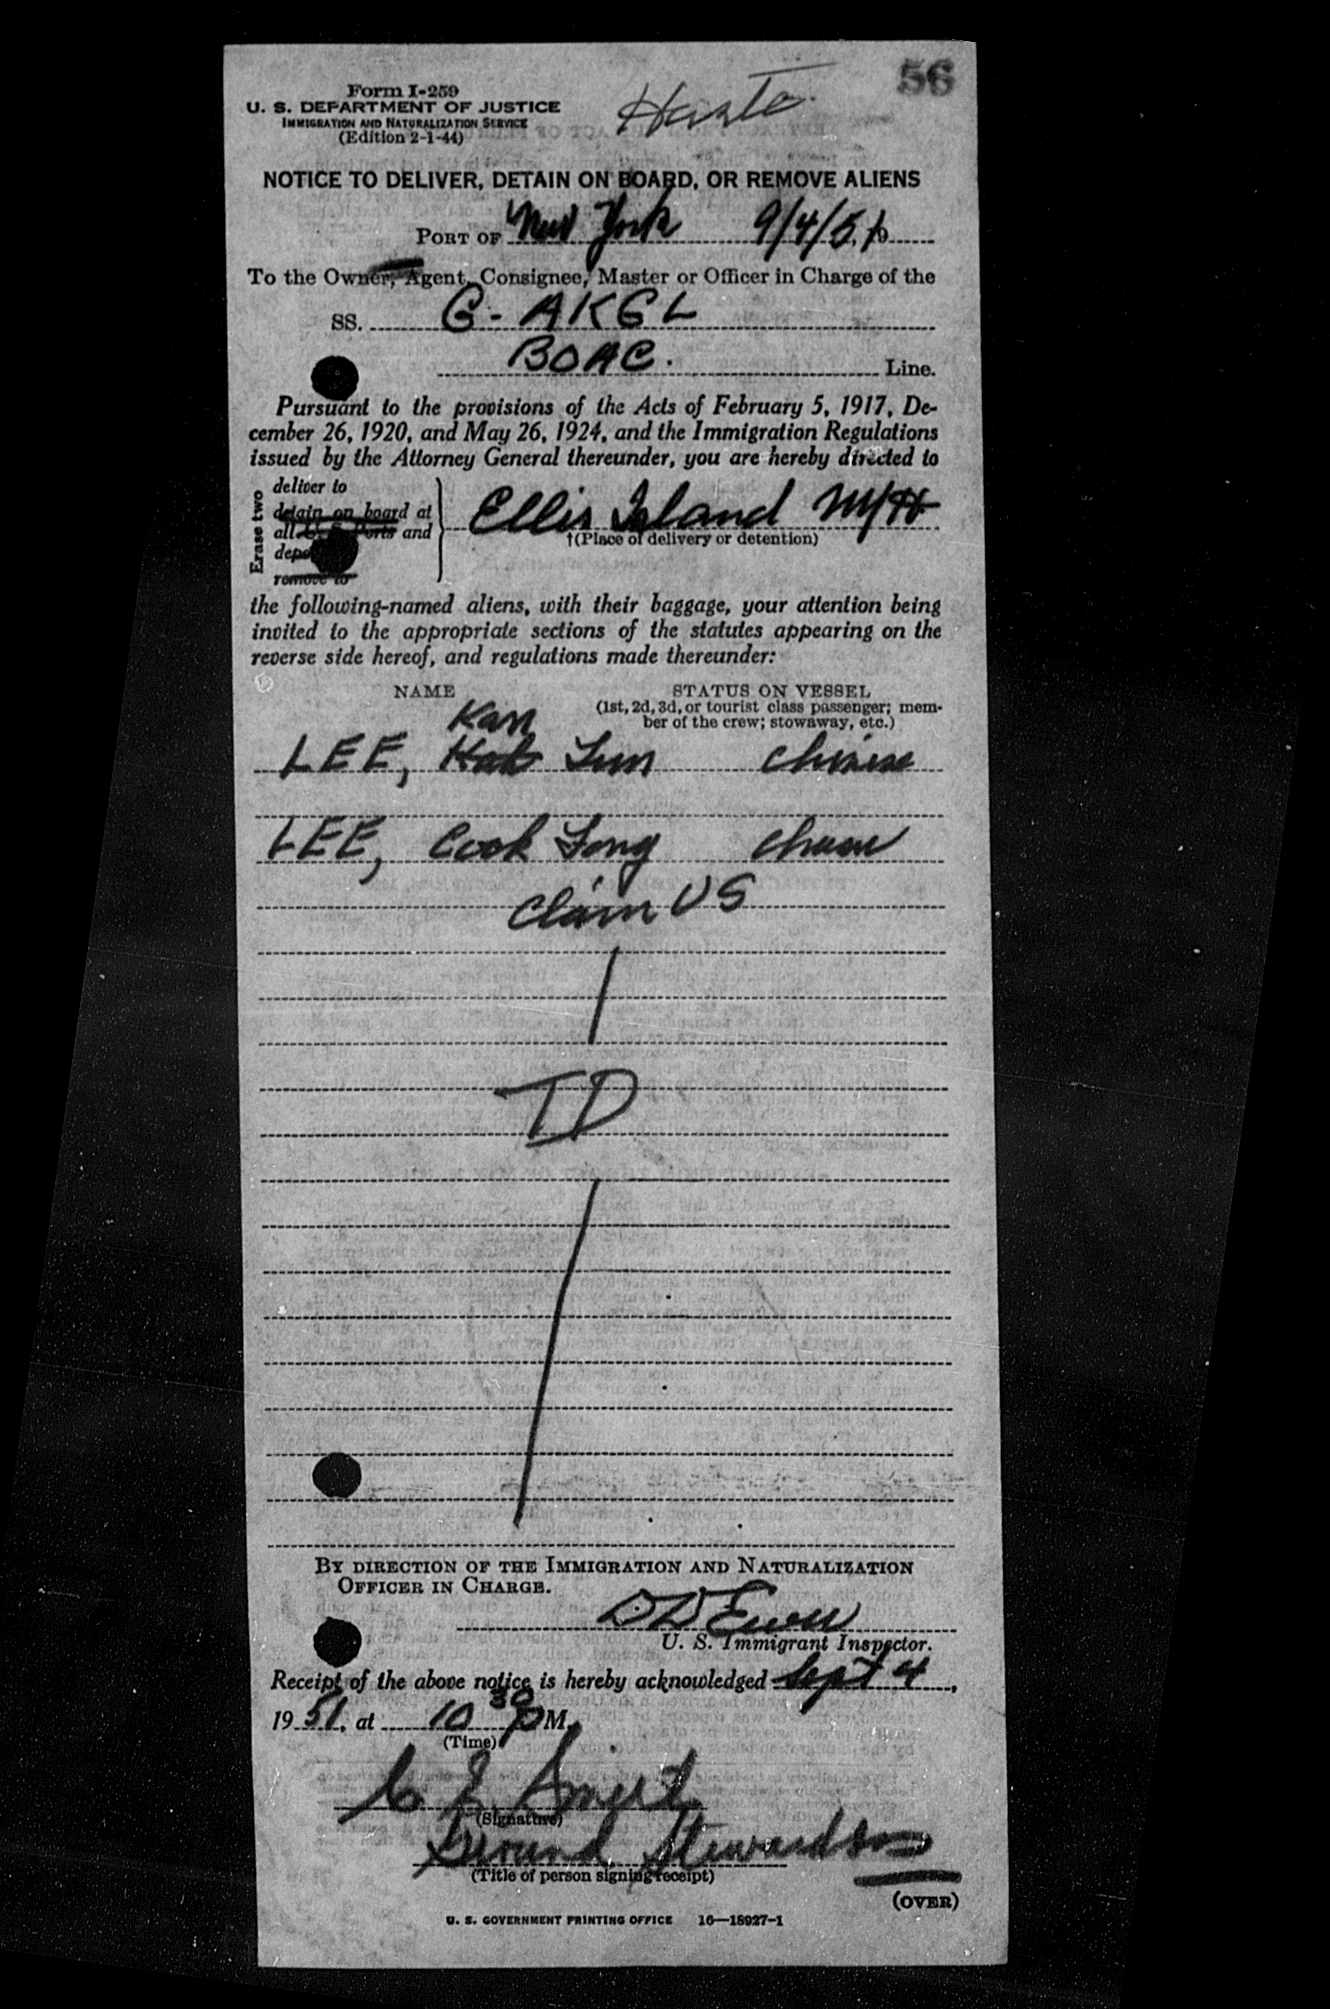 56
Form I-259
U. S. DEPARTMENT OF JUSTICE
IMMIGRATION AND NATURALIZATION SERVICE
(Edition 2-1-44)
NOTICE TO DELIVER, DETAIN ON BOARD, OR REMOVE ALIENS
PORT OF New York 9/4/51, 19
To the Owner, Agent, Consignee, Master or Officer in Charge of the
SS. G-AKGL
BOAC. Line.
Pursuant to the provisions of the Acts of February 5, 1917, De-
cember 26, 1920, and May 26, 1924, and the Immigration Regulations
issued by the Attorney General thereunder, you are hereby directed to
Erase two
deliver to
detain on board at
all U. S. Ports and
remove to
Ellis Island NYH
†(Place of delivery or detention)
the following-named aliens, with their baggage, your attention being
invited to the appropriate sections of the statutes appearing on the
reverse side hereof, and regulations made thereunder:
NAME STATUS ON VESSEL
(1st, 2d, 3d, or tourist class passenger; mem-
ber of the crew; stowaway, etc.)
Kan
LEE, Hok Sun Chinese
LEE, Cook Fong Chinese
Claim US
TD
BY DIRECTION OF THE IMMIGRATION AND NATURALIZATION
OFFICER IN CHARGE.
U. S. Immigrant Inspector.
Receipt of the above notice is hereby acknowledged Sept 4,
1951, at 10 30 PM.
(Time)
(Signature)
Ground Stewardson
(Title of person signing receipt)
(OVER)
U. S. GOVERNMENT PRINTING OFFICE 16—18927-1